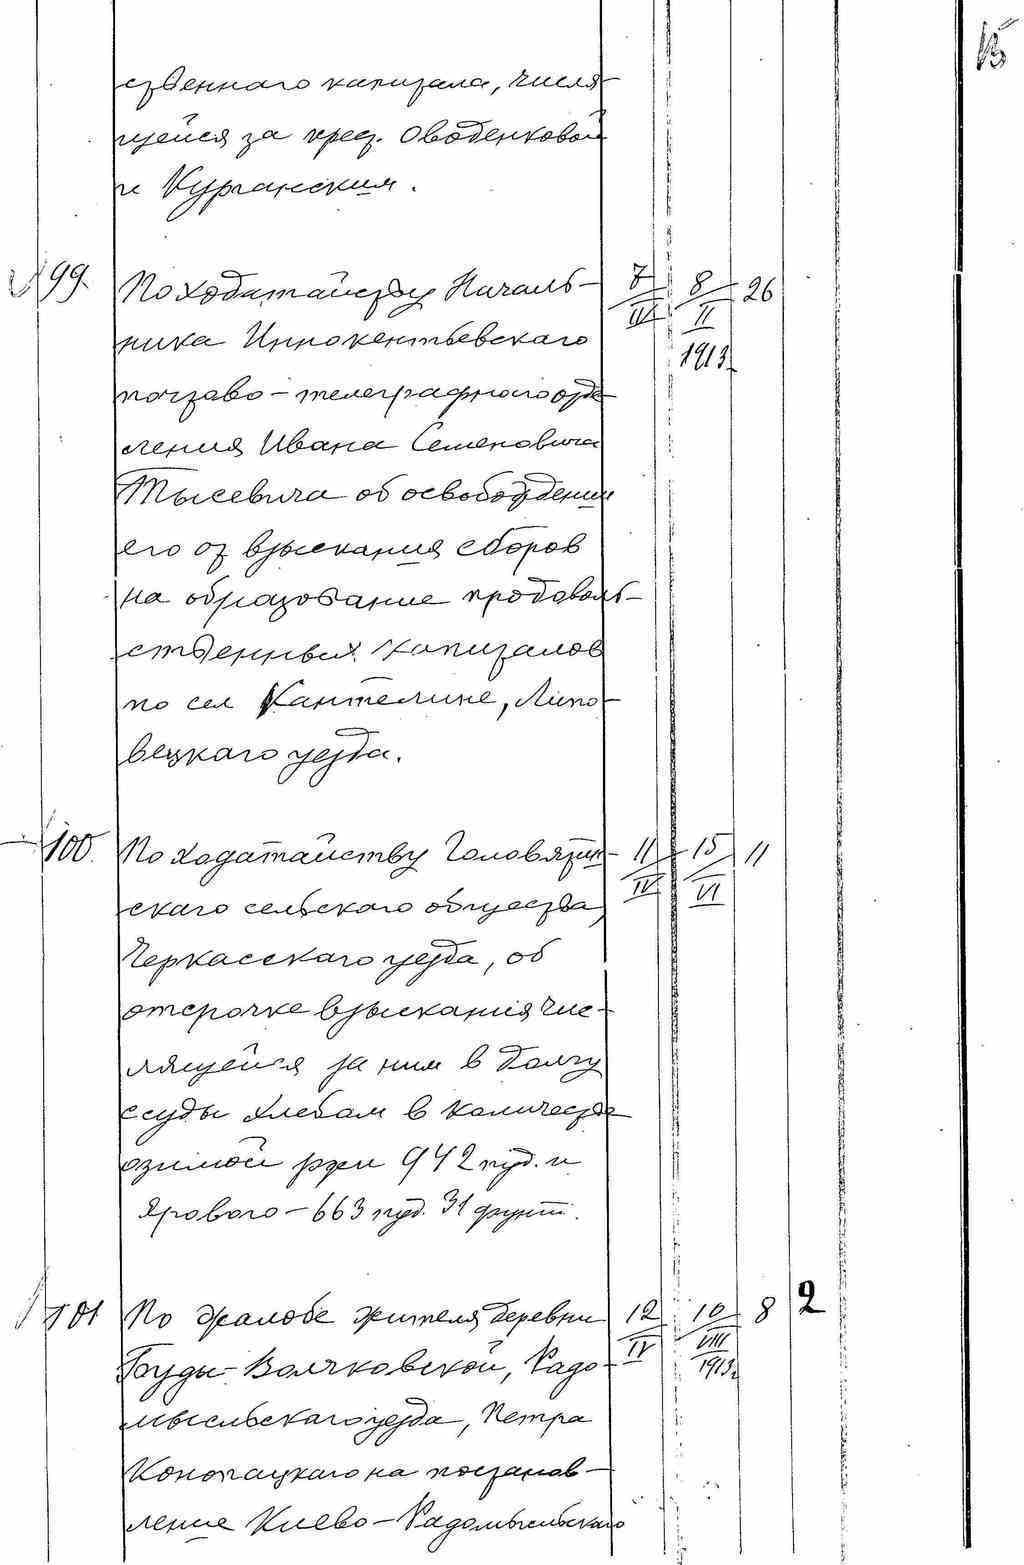 ственнаго капитала, числя-
щейся за крест. Оводенковой
и Курганским.
99. По ходатайству Началь- 7/IV 8/II 1913 26
ника Иннокентьевскаго
почтово-телеграфного отде-
ления Ивана Семеновича
Тысевича об освобождении
его от взыскания сборов
на образование продоволь-
ственных капиталов
по сел Кантелине, Липо-
вецкаго уезда.
100. По ходатайству Головятин- 11/IV 15/VI 11
скаго сельскаго общества,
Черкасскаго уезда, об
отсрочке взыскания чис-
лящейся за ним в долгу
ссуды хлебом в количестве
озимой ржи 942 пуд. и
ярового - 663 пуд. 31 фунт.
101 По жалобе жителя деревни 12/IV 10/VIII 1913г 8 2
Буды-Волчковской, Радо-
мысльскаго уезда, Петра
Конопацкаго на постанов-
ление Киево-Радомысльскаго